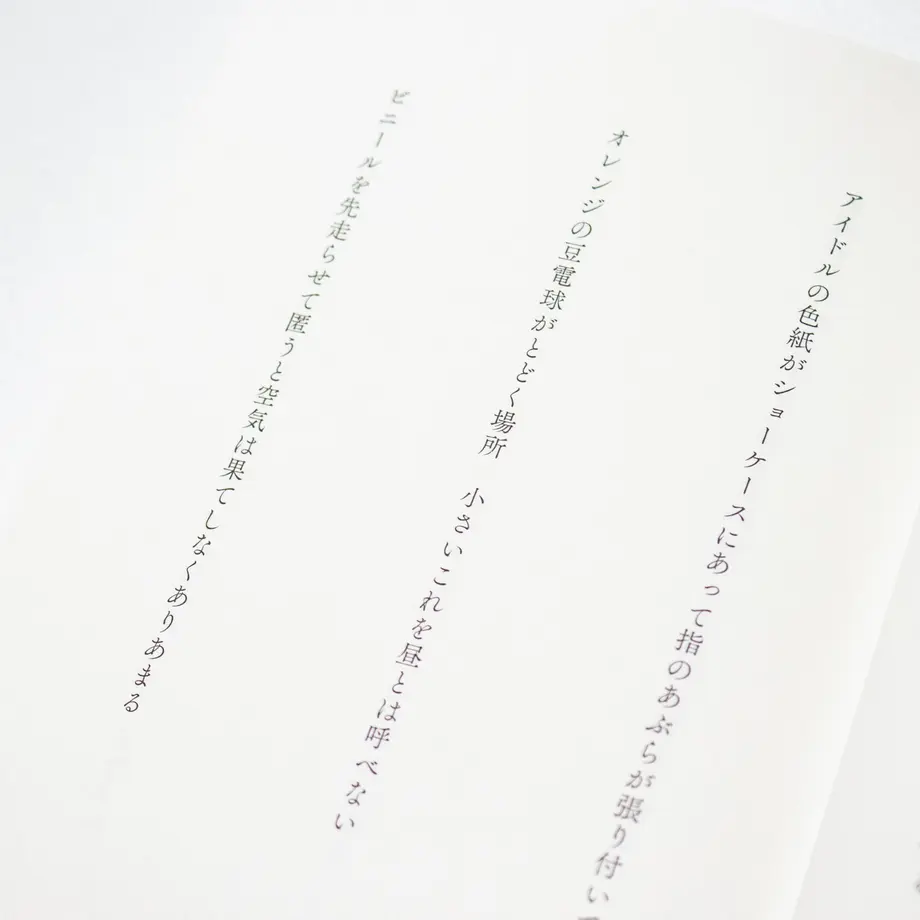 アイドルの色紙がショーケースにあって指のあぶらが張り付い
オレンジの豆電球がとどく場所　小さいこれを昼とは呼べない
ビニールを先走らせて匿うと空気は果てしなくありあまる